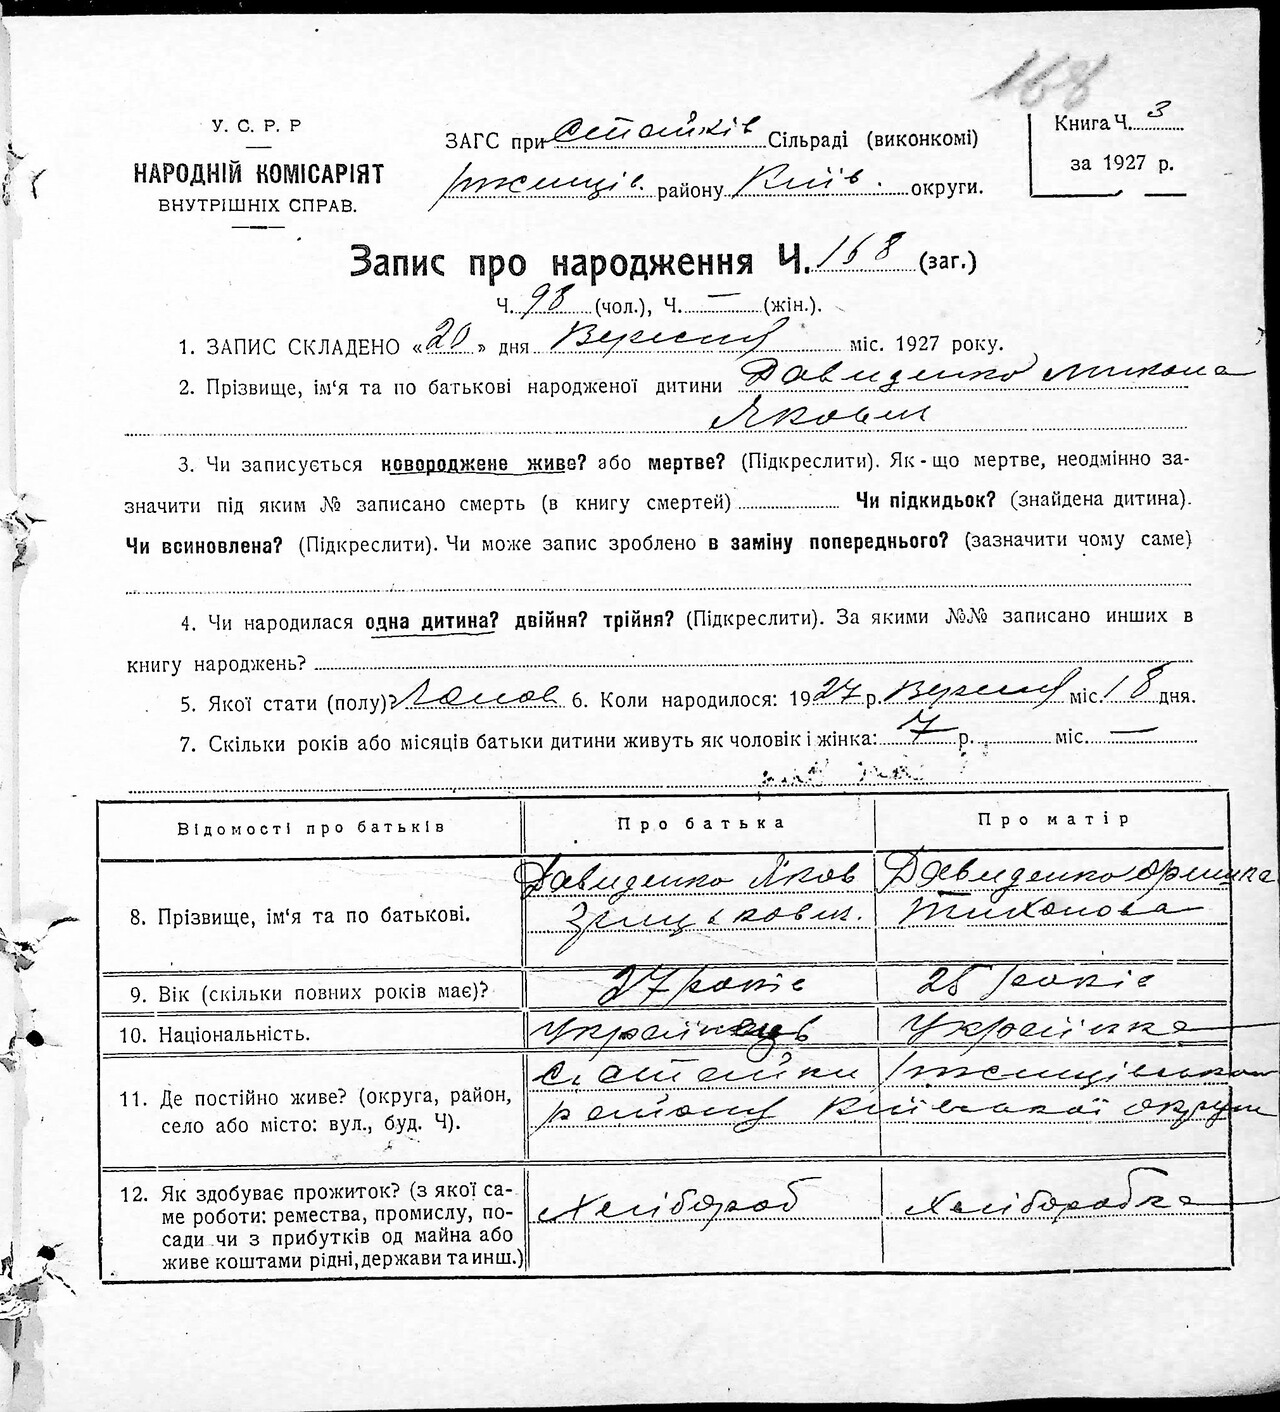 168
У. С. Р. Р
НАРОДНІЙ КОМІСАРІЯТ
ВНУТРІШНІХ СПРАВ.
ЗАГС при Стайків Сільраді (виконкомі)
Ржищів. району Київ. округи.
Книга Ч. 3
за 1927 р.
Запис про народження Ч. 168 (заг.)
Ч. 98 (чол.), Ч. — (жін.).
1. ЗАПИС СКЛАДЕНО «20» дня Вересня міс. 1927 року.
2. Прізвище, ім‘я та по батькові народженої дитини Давиденко Микола
Якович
3. Чи записується новороджене живе? або мертве? (Підкреслити). Як-що мертве, неодмінно за-
значити під яким № записано смерть (в книгу смертей) Чи підкидьок? (знайдена дитина).
Чи всиновлена? (Підкреслити). Чи може запис зроблено в заміну попереднього? (зазначити чому саме)
4. Чи народилася одна дитина? двійня? трійня? (Підкреслити). За якими №№ записано инших в
книгу народжень?
5. Якої стати (полу)? 6. Коли народилося: 1927 р. Вересня міс. 18 дня.
7. Скільки років або місяців батьки дитини живуть як чоловік і жінка: 7 р. міс. —
Відомості про батьків Про батька Про матір
8. Прізвище, ім‘я та по батькові.
Давиденко Яков
Грицькович.
Давиденко Оришка
Тихонова
9. Вік (скільки повних років має)? 27 років 25 років
10. Національність. Українець Українка
11. Де постійно живе? (округа, район,
село або місто: вул., буд. Ч).
с. Стайки Ржищівського
району Київської округи
12. Як здобуває прожиток? (з якої са-
ме роботи: ремества, промислу, по-
сади чи з прибутків од майна або
живе коштами рідні, держави та инш.)
Хлібороб Хліборобка